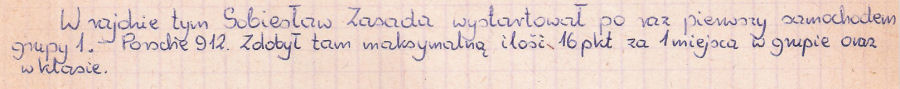 W rajdzie tym Sobiesław Zasada wystartował po raz pierwszy samochodem
grupy 1. Porsche 912. Zdobył tam maksymalną ilość 16 pkt za 1 miejsca w grupie oraz
w klasie.